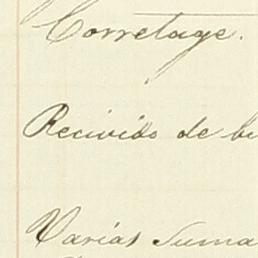 Corretage.
Recivido de bu
Varias Suma